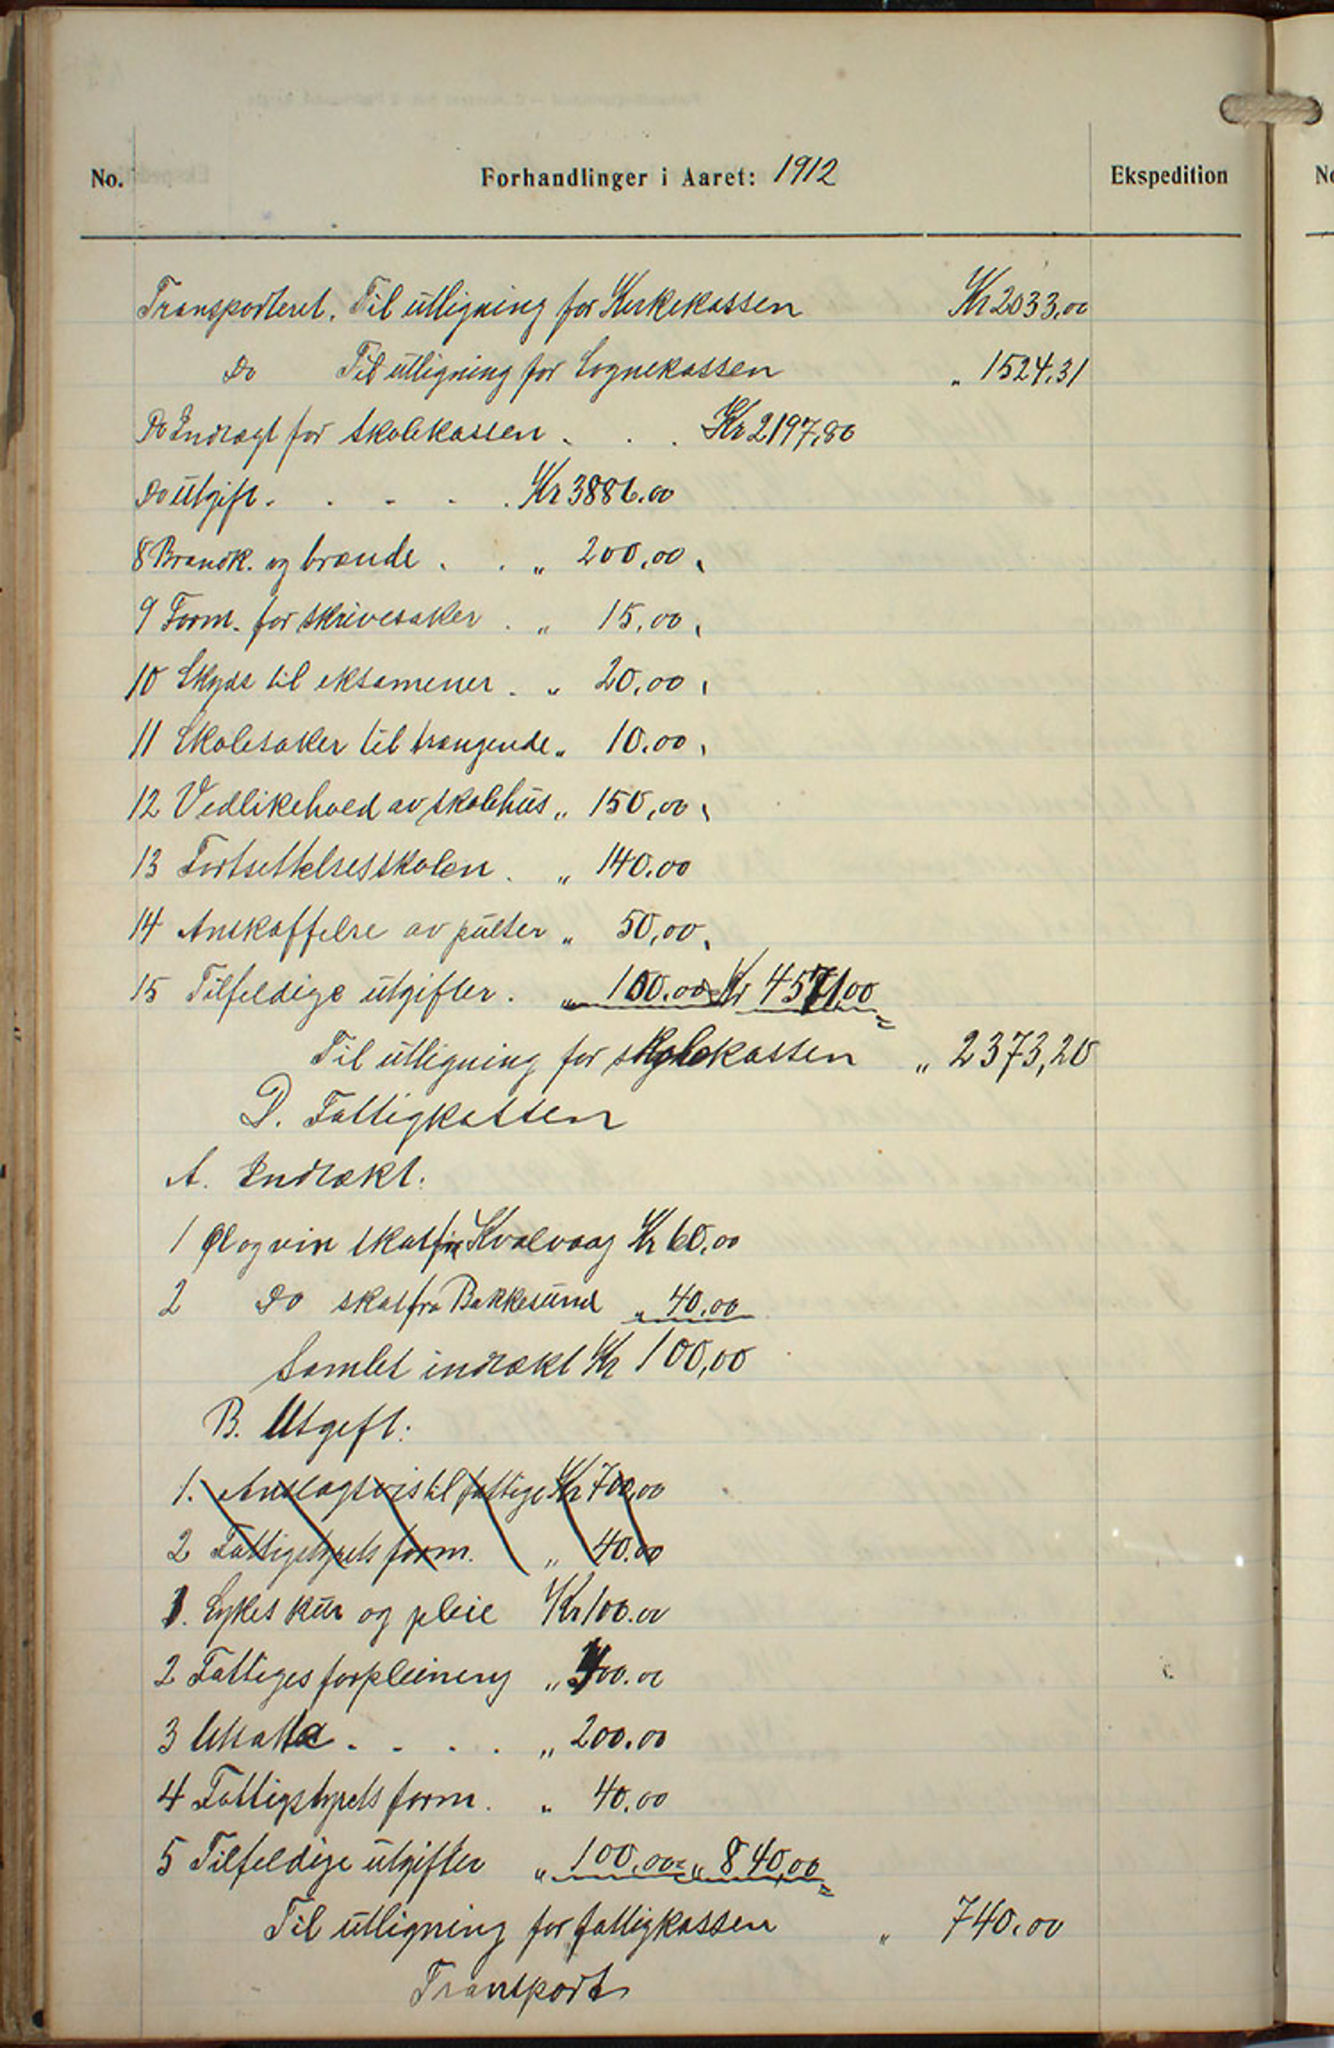 No. Forhandlinger i Aaret: 1912 Ekspedition
Transporteret. Til utligning for Kirkekassen Kr 2033,00
Do Til utligning for Sognekassen " 1524,31
Do Indtægt for skolekassen . . . Kr 2197,80
Do utgift . . . . . Kr 3886.00
8 Brandk. og brænde . . " 200,00
9 Form. for skrivesaker . " 15,00
10 Skyds til eksamener . " 20,00
11 Skolesaker til trængende " 10.00
12 Vedlikehold av skolehus " 150,00
13 Fortsettelsesskolen . " 140.00
14 Anskaffelse av pulter " 50,00
15 Tilfeldige utgifter . " 100.00 = Kr 4571,00
Til utligning for skolekassen " 2373,20
D. Fattigkassen
A. Indtækt:
1 Øl og vin skat fra Kvalvaag Kr 60,00
2 Do skat fra Bakkesund " 40.00
Samlet indtækt Kr 100,00
B. Utgift:
1. Anslagsvis til fattige Kr 700,00
2 Fattigstyrets form. " 40.00
1. Sykes kur og pleie Kr 100.00
2 Fattiges forpleining " 400.00
3 Utsatte . . . . " 200.00
4 Fattigstyrets form. " 40.00
5 Tilfeldige utgifter " 100,00 = " 840,00
Til utligning for fattigkassen " 740.00
Transport